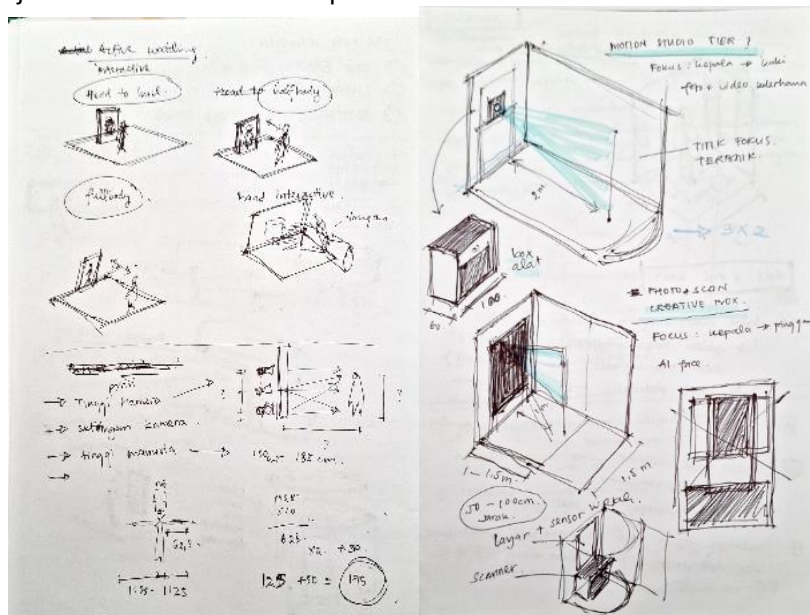 Active
interactive
Head to
Head to halfbody
fullbody
hand interactive
posisi
→ Tinggi kamera
→ kamera
→ tinggi manusia → 185 cm.
?
?
?
62,5
x2 +50
125 +50 = 175
MOTION STUDIO TIER ?
FOKUS : kepala → kaki
foto + video sederhana
TITIK FOKUS
TERBAIK.
2m
→ 3 X 2
box
alat
60
100
PHOTO & SCAN
CREATIVE BOX.
FOCUS : kepala → pinggang
AI face
1 - 1.5 m
1.5 m
50 - 100 cm.
Jarak.
layar + sensor wajah
scanner